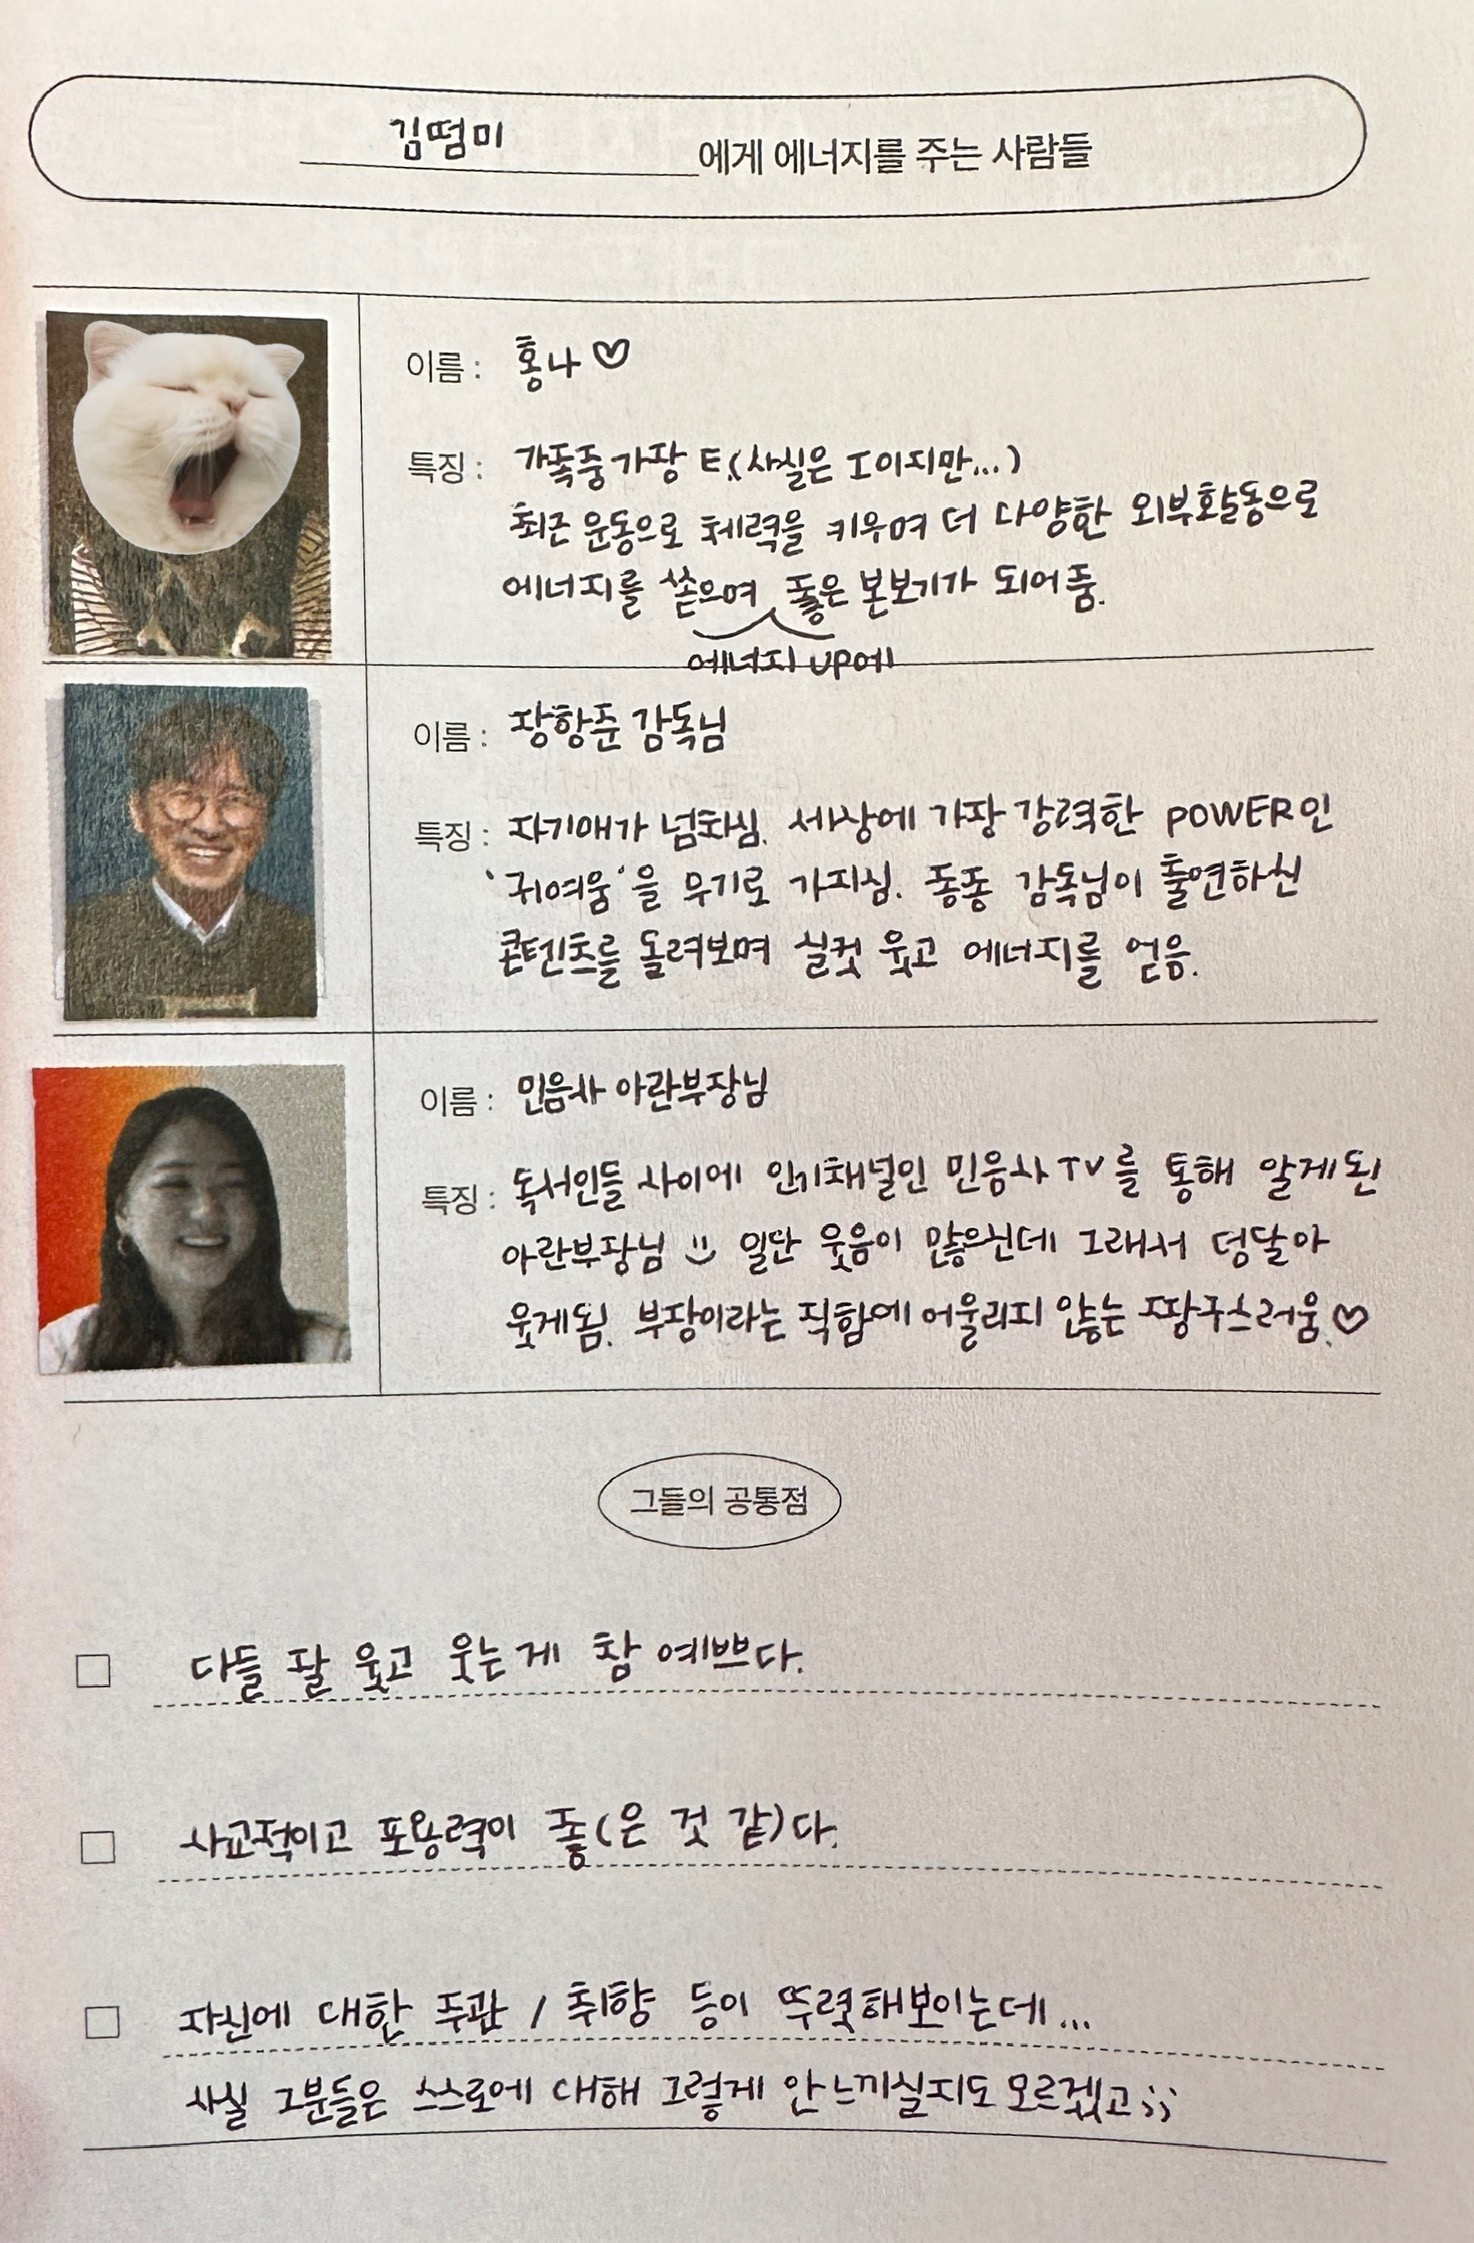 김떰미 에게 에너지를 주는 사람들
이름 : 홍나♡
특징 : 가족중 가장 E.(사실은 I이지만...)
최근 운동으로 체력을 키우며 더 다양한 외부활동으로
에너지를 쏟으며 좋은 본보기가 되어줌.
에너지 UP에
이름 : 장항준 감독님
특징 : 자기애가 넘치심. 세상에 가장 강력한 POWER인
'귀여움'을 무기로 가지심. 종종 감독님이 출연하신
콘텐츠를 돌려보며 실컷 웃고 에너지를 얻음.
이름 : 민음사 아란부장님
특징 : 독서인들 사이에 인기채널인 민음사TV를 통해 알게된
아란부장님 일단 웃음이 많으신데 그래서 덩달아
웃게됨. 부장이라는 직함에 어울리지 않는 짱구스러움.♡
그들의 공통점
□ 다들 잘 웃고 웃는게 참 예쁘다.
□ 사교적이고 포용력이 좋(은 것 같)다.
□ 자신에 대한 주관 / 취향 등이 뚜렷해보이는데...
사실 그분들은 스스로에 대해 그렇게 안느끼실지도 모르겠고;;